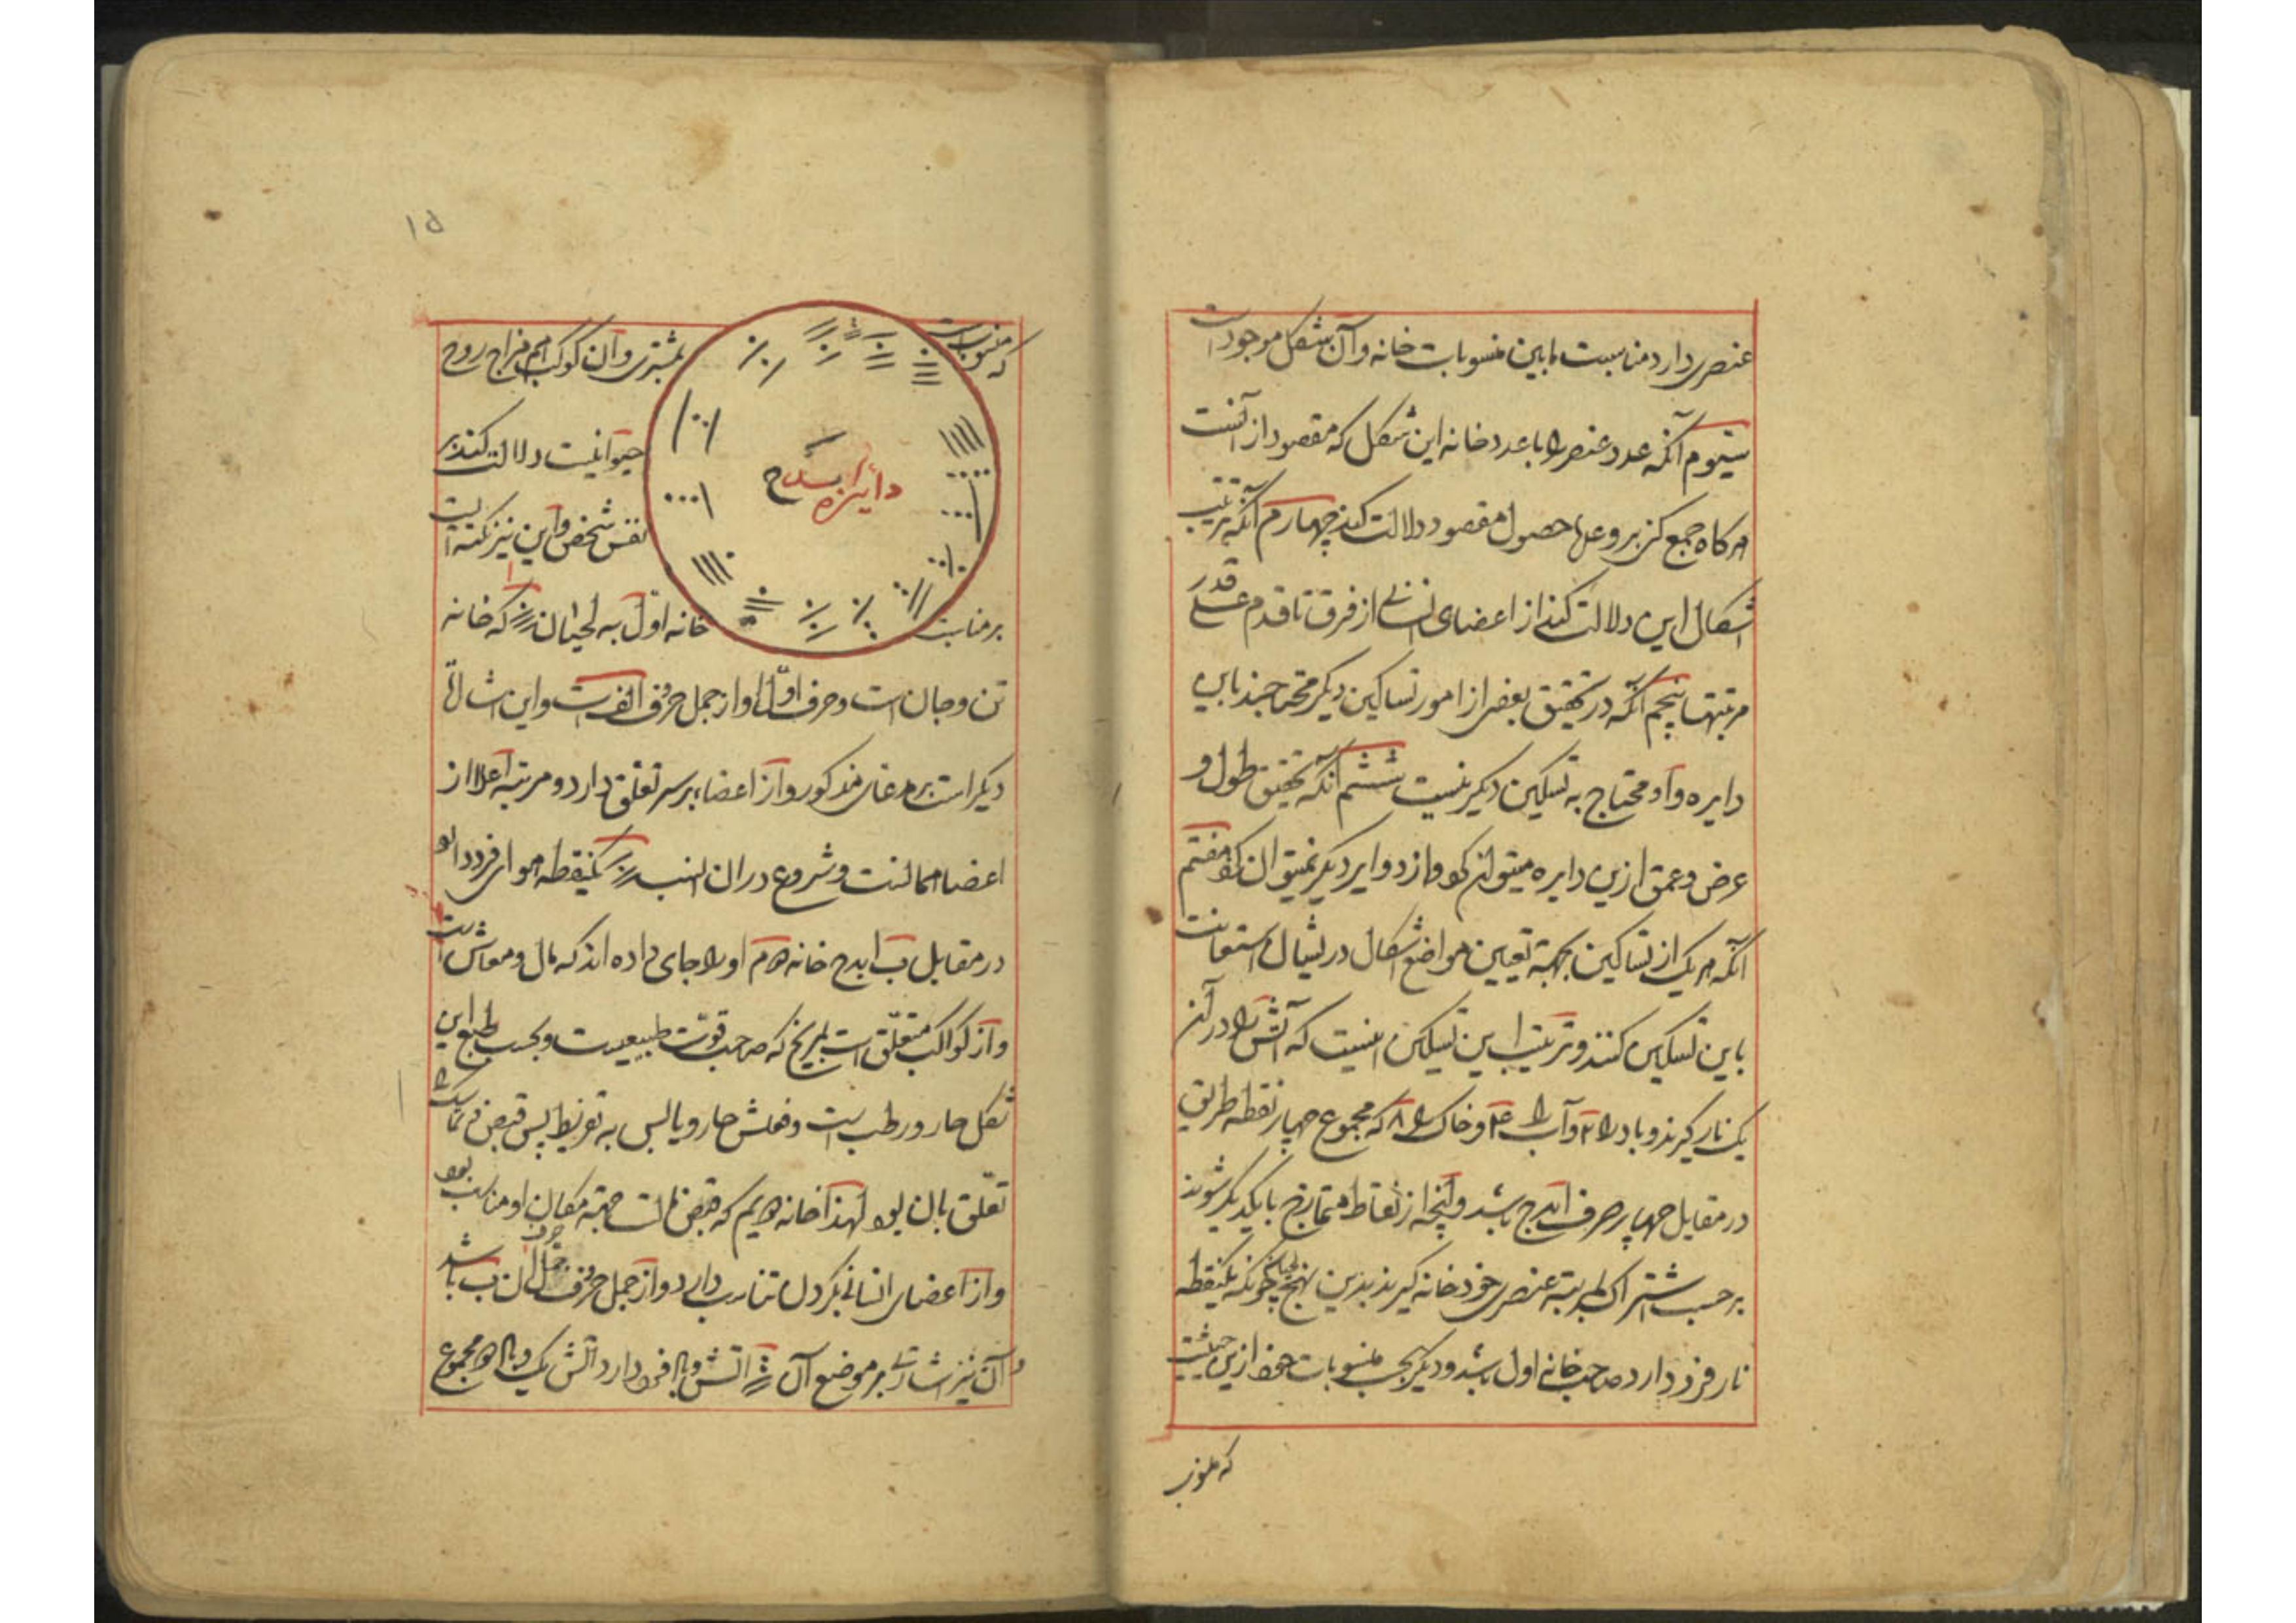 عنصری دارد مناسبت مابین منسوبات خانه وآن شکل موجود است
سیّوم آنکه عدد عنصر را با عدد خانه این شکل که مقصود از آنست
هرکاه جمع کنند بر وعدها حصول مقصود دلالت کند چهارم آنکه ترتیب
اشکال این دلالت کند از اعضای انسانی از فرق تا قدم علی قدر
مرتبتها پنجم آنکه در تحقیق بعضی از امور تساکین دیکر محتاجند باین
دایره و او محتاج به تسکین دیکر نیست ششم آنکه تحقیق طول و
عرض و عمق ازین دایره میتوان کرد و از دوایر دیکر نمیتوان کرد هفتم
آنکه هر یک از تساکین بجهة تعیین مواضع اشکال در استعانت
باین تسکین کنند و ترتیب این تسکین اینست که آتش را در آن
یک نار کیرند و باد را ۲ وآب را ۴ وخاک را ۸ که مجموع چهار نقطه طریق
در مقابل چهار حرف ابدح باشد وآنچه از نقاط ممتازج بایکدیکر شوند
بر حسب اشتراک مرتبه عنصری خود خانه کیرند بدین نهج چونکه یکنقطه
نار فرد دارد صاحب خانه اول باشد و دیکر بحسب منسوبات خود ازین حیثیت
که منسوب
۱۵
که منسوب است بمشتری وآن کوکب هم مزاج روح
حیوانیست دلالت کند بر
نفس شخص واین نیز نکته است
دائره ابدح
بر مناسبت خانه اوّل به لحیان که خانه
تن وجان است وحرف اوّل او از جمل حروف الف است واین اشارتی
دیکر است بر مدعای مذکور واز اعضا بر سر تعلّق دارد و مرتبه اعلا از
اعضا همانست وشروع در ان یکنقطه هوای فرد دارد
در مقابل ب ابدح خانه دوم او را جای داده اند که مال ومعاش است
واز کواکب متعلّق است بمریخ که صاحب قوّت طبیعیست وبحسب طبع این
شکل حار و رطب است وفعلش حار ویابس
تعلّق بان بود لهذا خانه دویم که مکان او مناسب بود
واز اعضای انسانی بکردن تناسب دارد واز جمل حروف ان ب باشد
وآن نیز اشارتی بر موضع آن آتش وباد فرد دارد آتش یک وباد دو مجموع